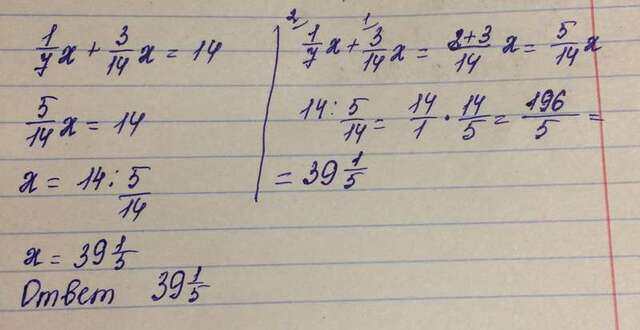 1/7 x + 3/14 x = 14
5/14 x = 14
x = 14 : 5/14
x = 39 1/5
Ответ 39 1/5
2) 1)
1/7 x + 3/14 x = 2+3/14 x = 5/14 x
14 : 5/14 = 14/1 · 14/5 = 196/5 =
= 39 1/5